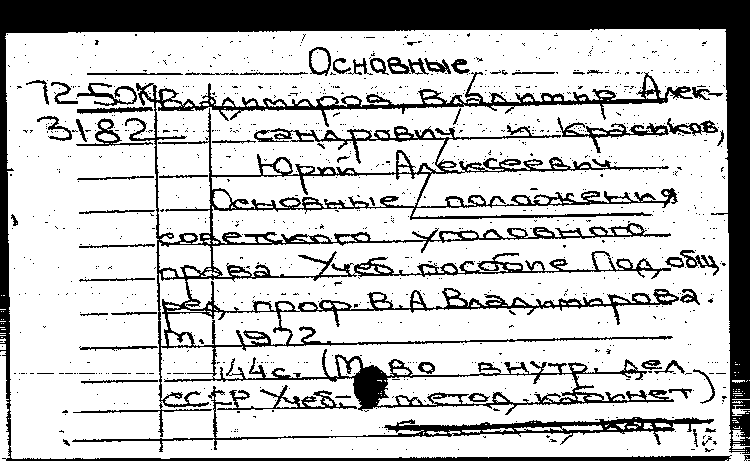 Основные
72-50К Владимиров, Владимир Алек-
3182 сандрович и Красиков,
Юрий Алексеевич
Основные положения
советского уголовного
права. Учеб. пособие Под общ.
ред. проф. В.А. Владимирова.
М. 1972.
144с. (М-во внутр. дел
СССР. Учеб.- метод. кабинет).